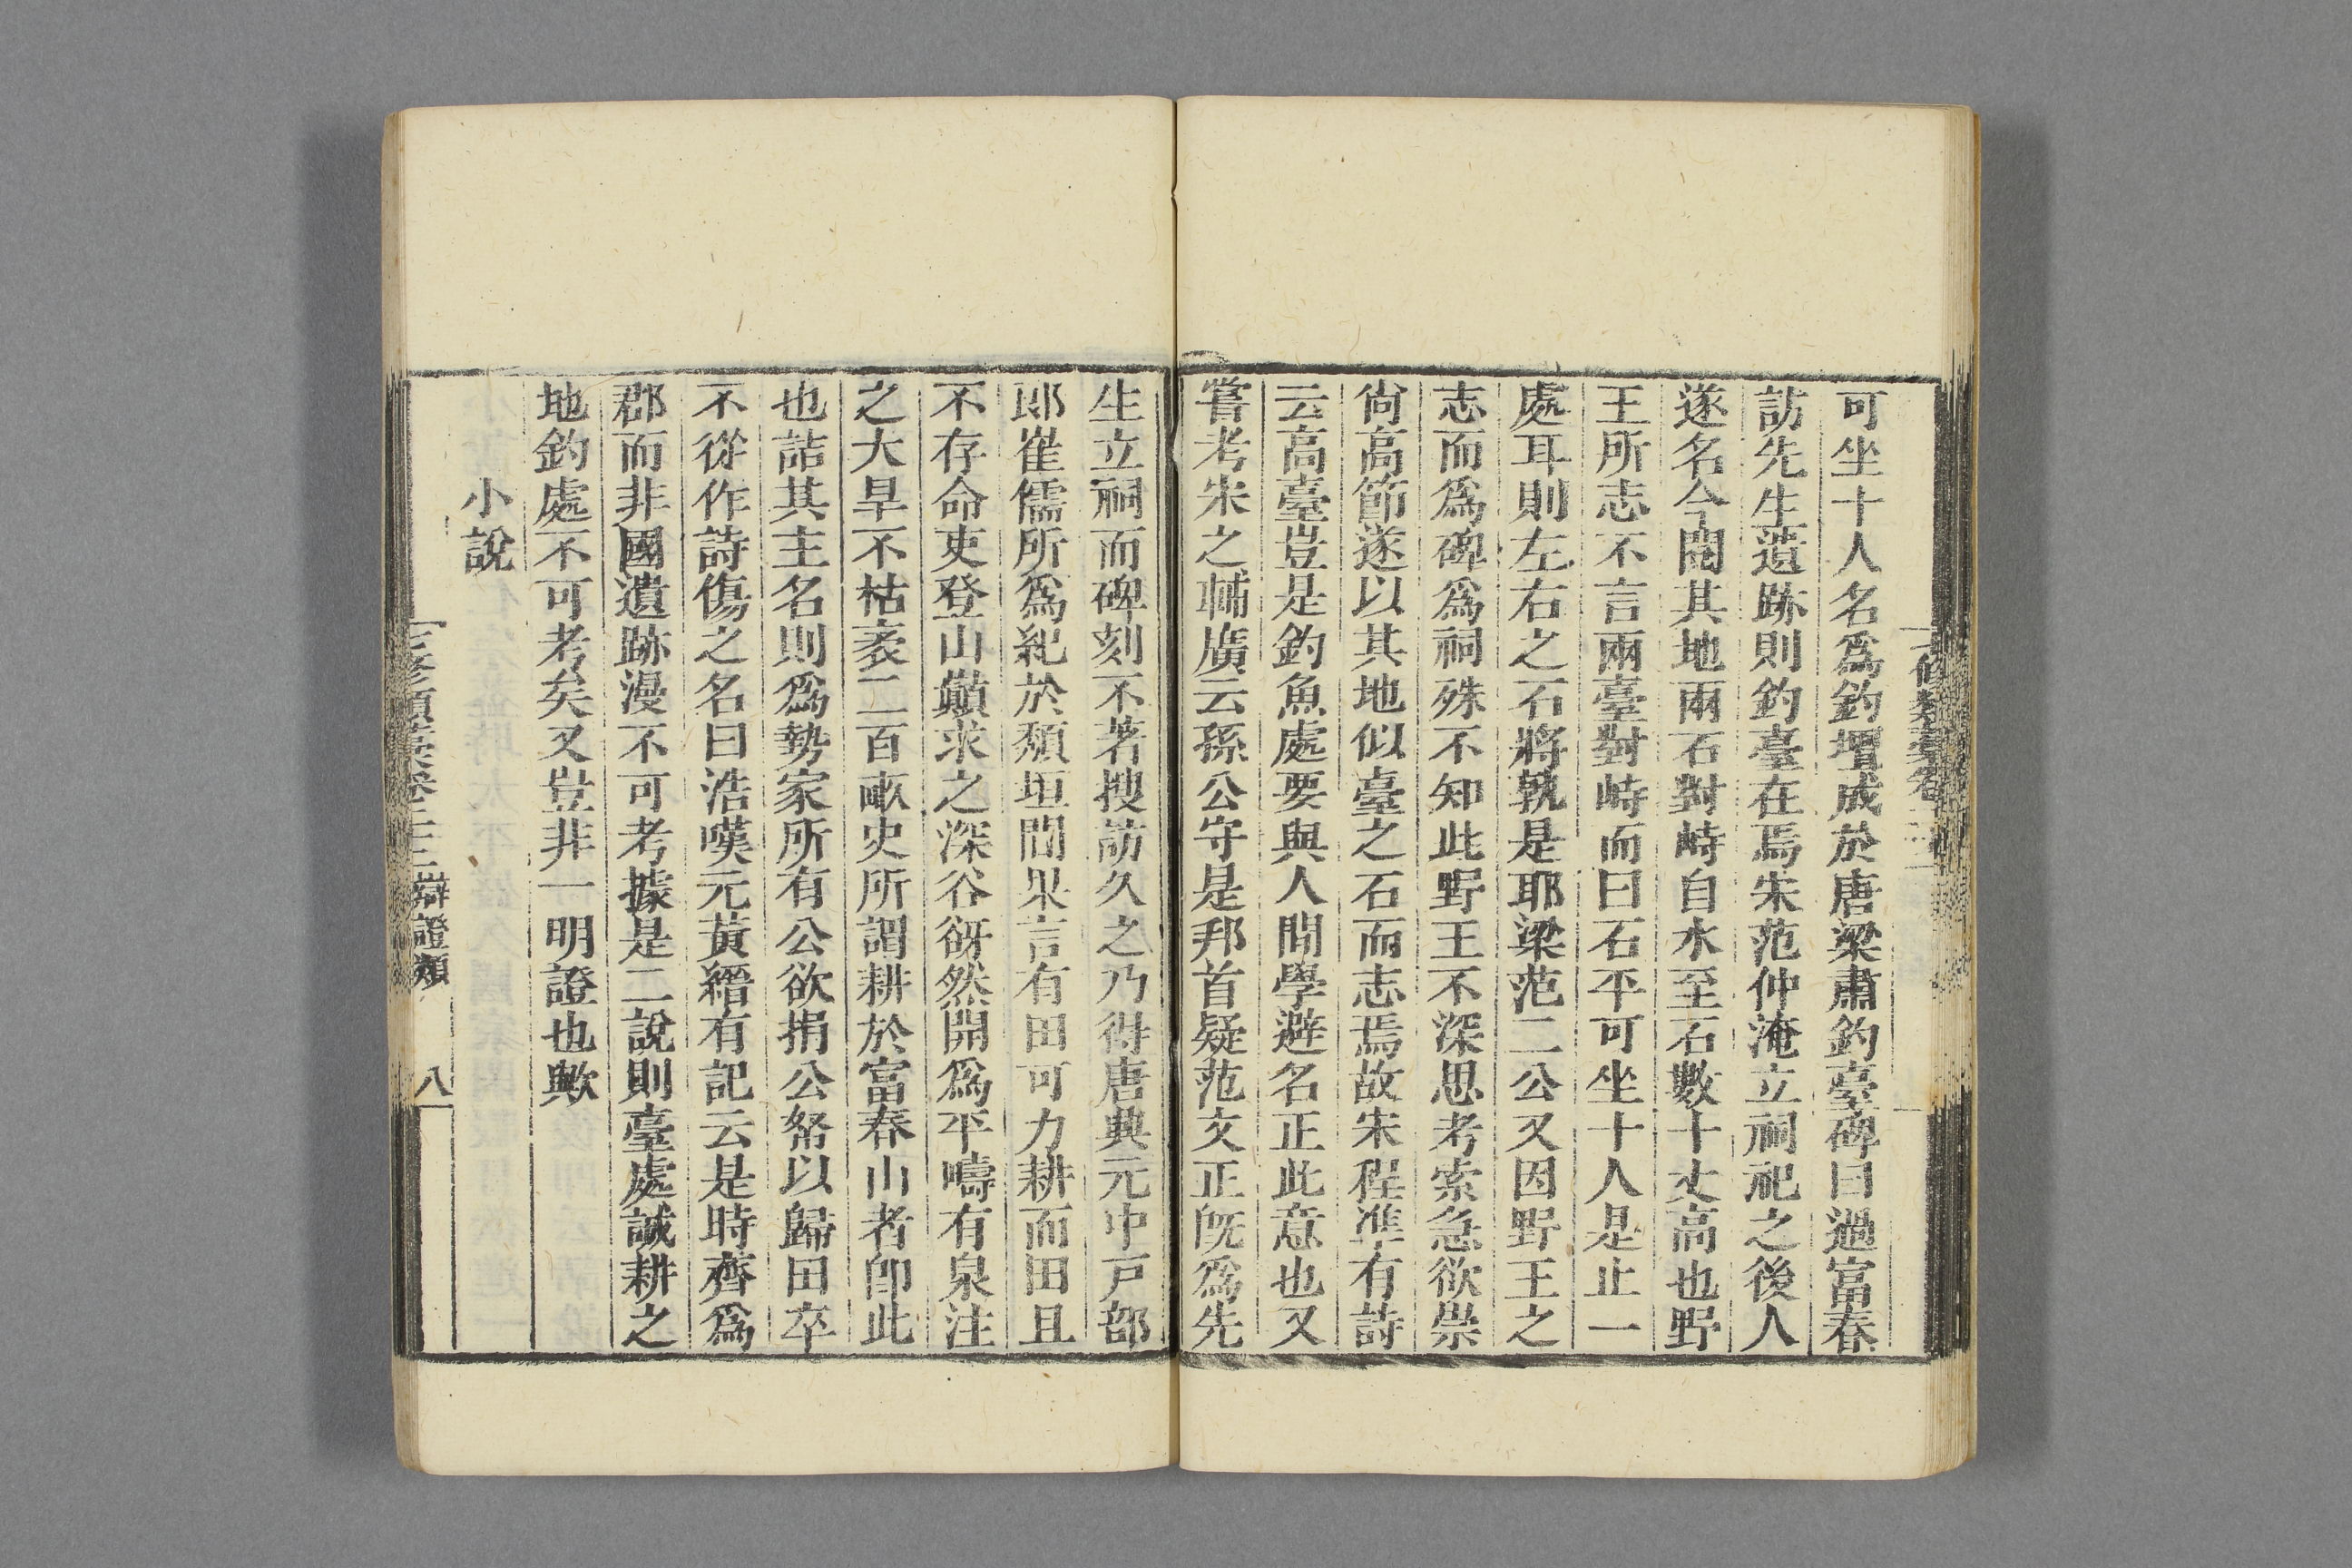 可坐十人名爲釣壇成於唐梁肅釣臺碑曰過富春
訪先生遺跡則釣臺在焉宋范仲淹立祠祀之後人
遂名今閱其地兩石對峙自水至石數十丈高也野
王所志不言兩臺對峙而曰石平可坐十人是止一
處耳則左右之石將孰是耶梁范二公又因野王之
志而爲碑爲祠殊不知此野王不深思考索急欲崇
尙高節遂以其地似臺之石而志焉故宋程準有詩
云高臺豈是釣魚處要與人間學避名正此意也又
嘗考宋之輔廣云孫公守是邦首疑范文正旣爲先
生立祠而碑刻不著搜訪久之乃得唐典元中戸部
郎崔儒所爲紀於頹垣間果言有田可力耕而田且
不存命吏登山巔求之深谷谺然開爲平疇有泉注
之大旱不枯袤二百畝史所謂耕於富春山者卽此
也詰其主名則爲勢家所有公欲捐公帑以歸田卒
不從作詩傷之名曰浩嘆元黃縉有記云是時薺爲
郡而非國遺跡漫不可考據是二說則臺處誠耕之
地釣處不可考矣又豈非一明證也歟
小說
七修類藁卷二三 辯證類 八